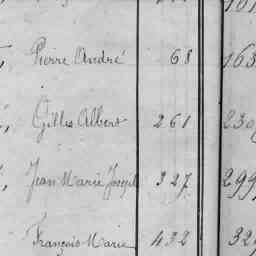 Pierre André 68 163
Gilles Albers 261 230
Jean Marie Joseph 327 299
François Marie 432 32